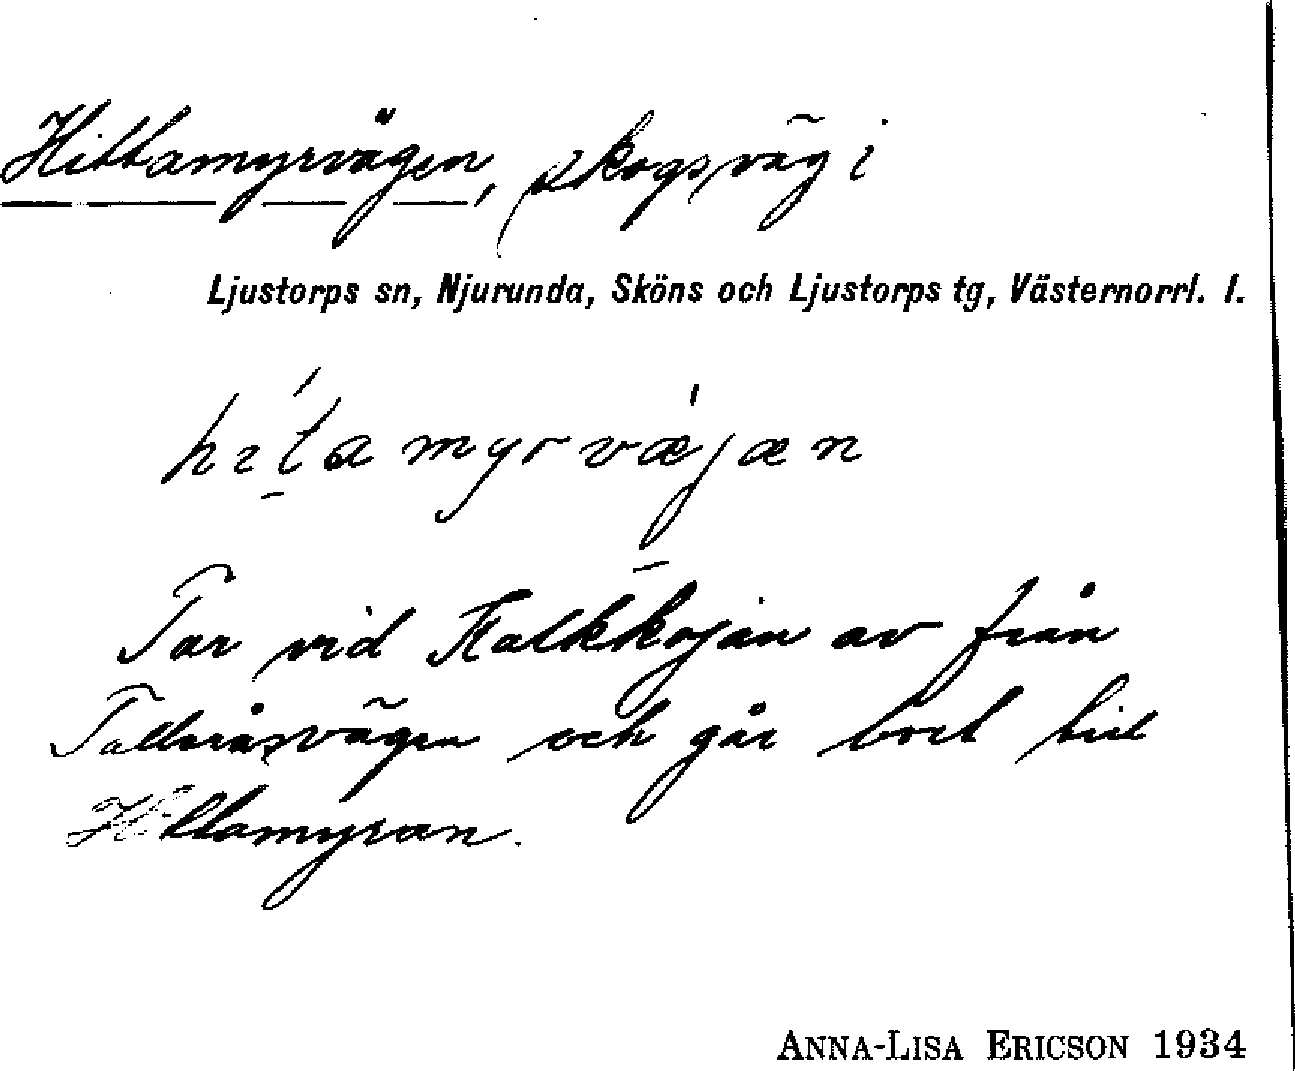 Hittamyrvägen, skogsväg i
Ljustorps sn, Njurunda, Sköns och Ljustorps tg, Västernorrl. l.
hítamyrvæ̍jæn
Tar vid Kalkkojan av från
Tallåråsvägen och går bort till
Hittamyran.
ANNA-LISA ERICSON 1934